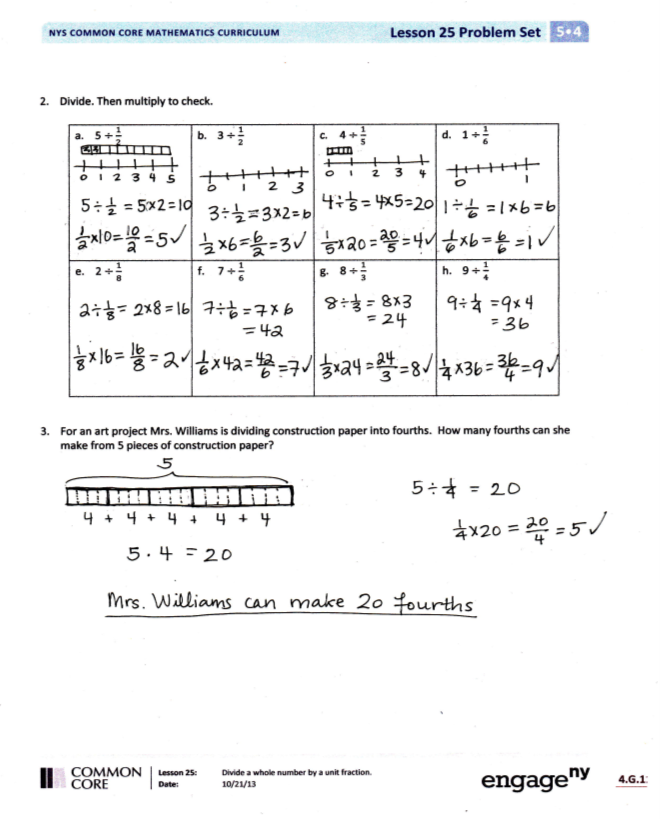 NYS COMMON CORE MATHEMATICS CURRICULUM Lesson 25 Problem Set 5•4
2. Divide. Then multiply to check.
a. 5 ÷ 1/2
0 1 2 3 4 5
5 ÷ 1/2 = 5x2=10
1/2 x10= 10/2 =5✓
b. 3 ÷ 1/2
0 1 2 3
3 ÷ 1/2 = 3x2=6
1/2 x6= 6/2 =3✓
c. 4 ÷ 1/5
0 1 2 3 4
4 ÷ 1/5 = 4x5=20
1/5 x20= 20/5 =4✓
d. 1 ÷ 1/6
0 1
1 ÷ 1/6 =1x6=6
1/6 x6= 6/6 =1✓
e. 2 ÷ 1/8
2 ÷ 1/8 = 2x8=16
1/8 x16= 16/8 = 2✓
f. 7 ÷ 1/6
7 ÷ 1/6 = 7x6
= 42
1/6 x42= 42/6 =7✓
g. 8 ÷ 1/3
8 ÷ 1/3 = 8x3
= 24
1/3 x24= 24/3 =8✓
h. 9 ÷ 1/4
9 ÷ 1/4 =9x4
= 36
1/4 x36= 36/4 =9✓
3. For an art project Mrs. Williams is dividing construction paper into fourths. How many fourths can she
make from 5 pieces of construction paper?
5
4 + 4 + 4 + 4 + 4
5 · 4 = 20
5 ÷ 1/4 = 20
1/4 x20 = 20/4 =5✓
Mrs. Williams can make 20 fourths
COMMON CORE
Lesson 25: Divide a whole number by a unit fraction.
Date: 10/21/13
engageny
4.G.1